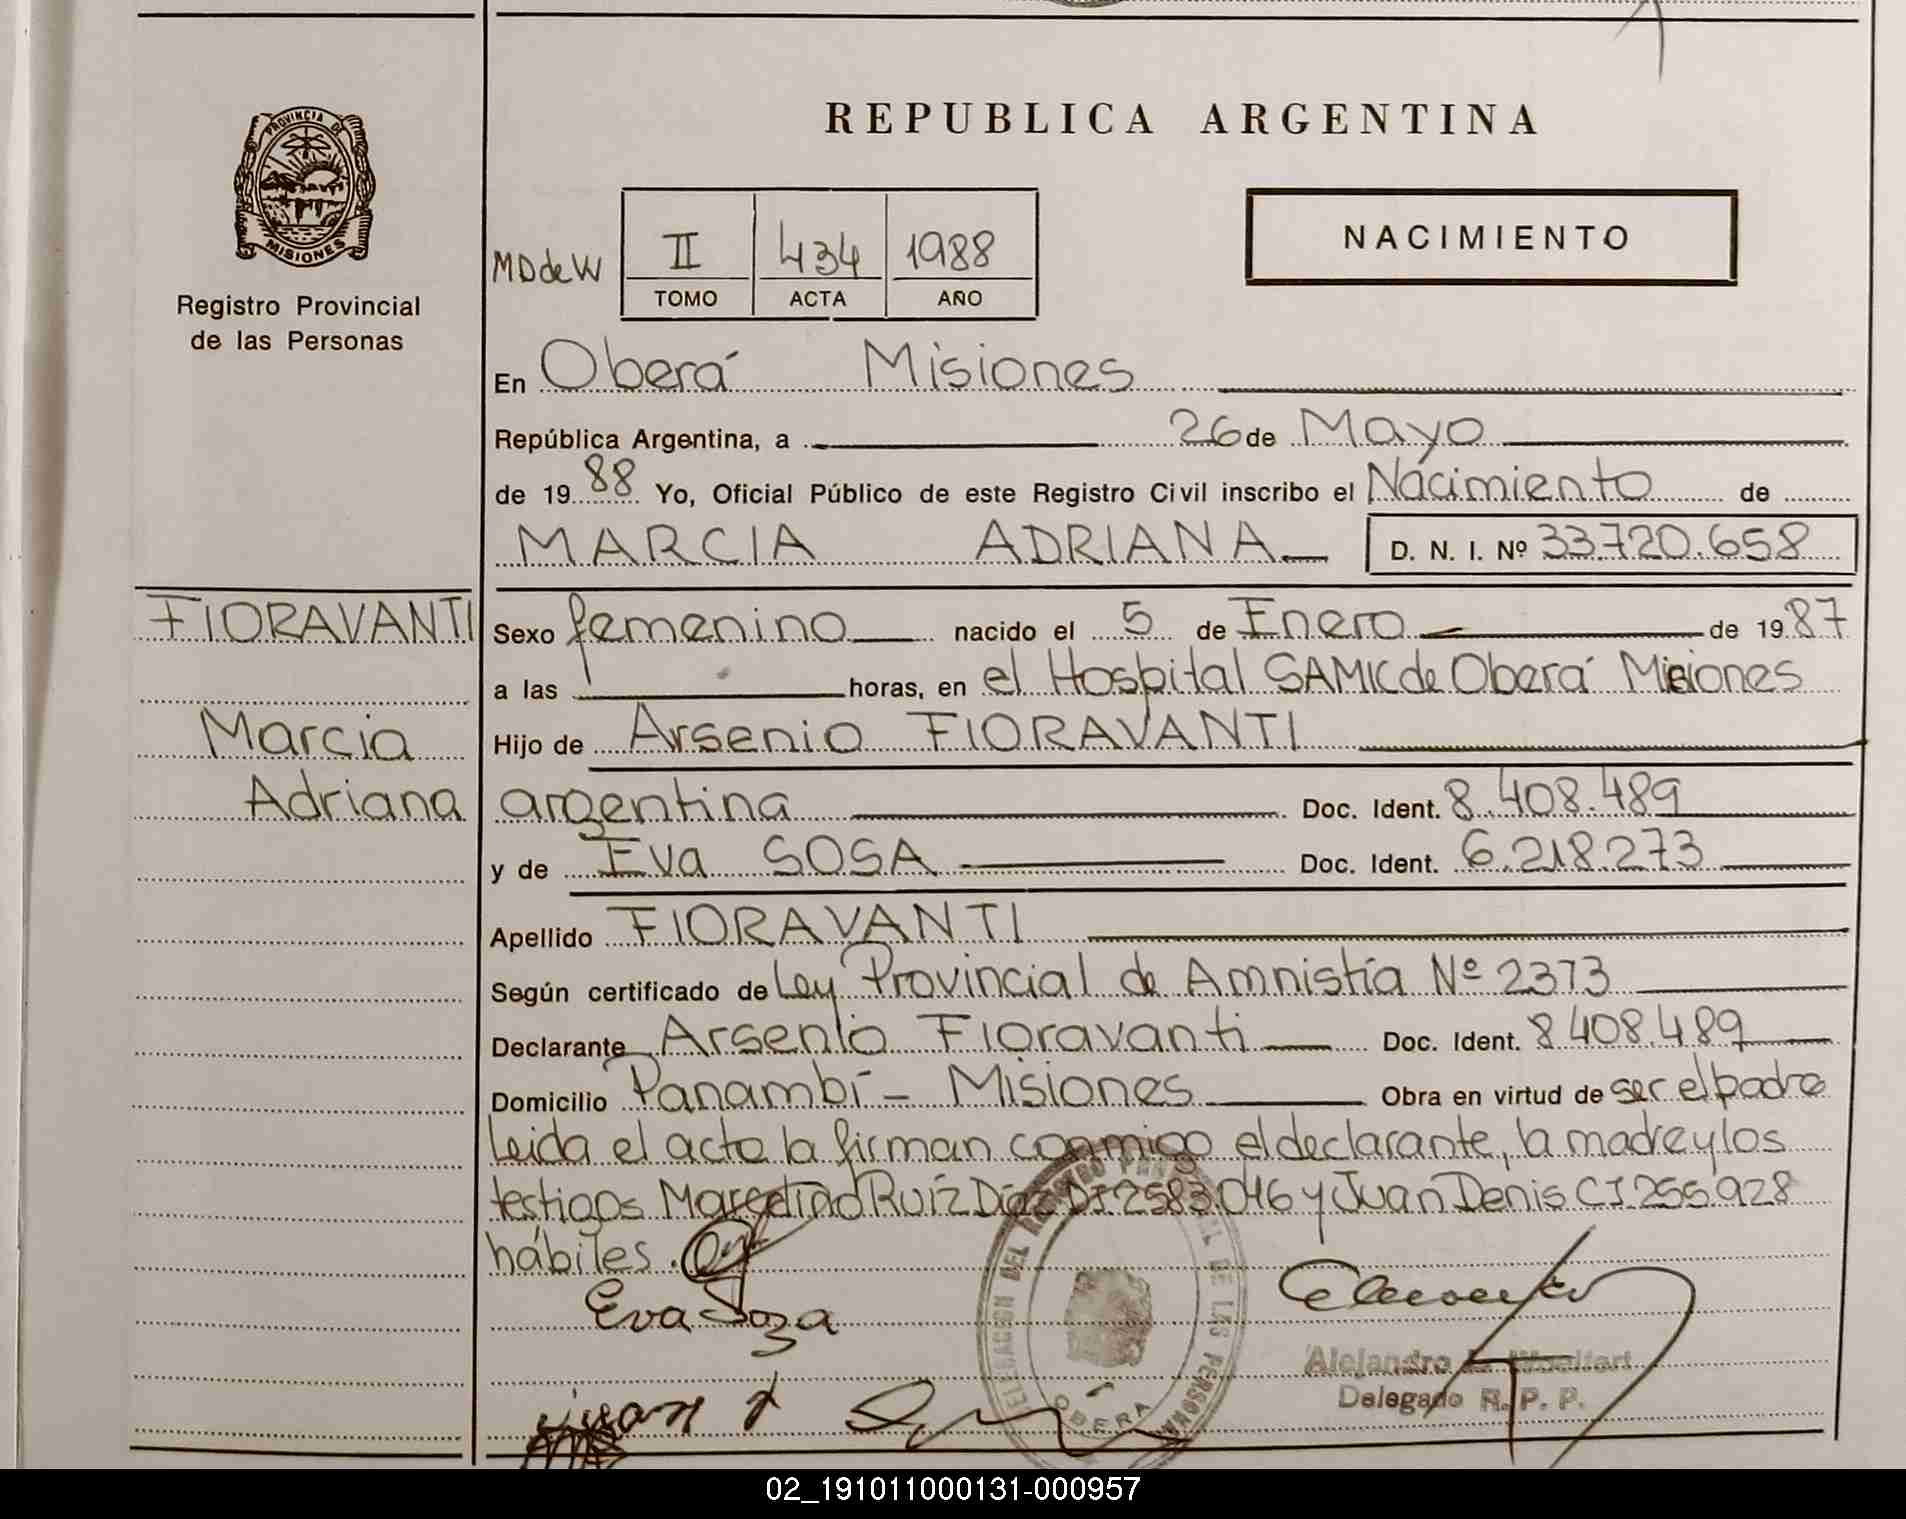 REPUBLICA ARGENTINA
PROVINCIA DE
MISIONES
Registro Provincial
de las Personas
NACIMIENTO
MDdeW
II 434 1988
TOMO ACTA AÑO
En Oberá Misiones
República Argentina, a 26 de Mayo
de 1988 Yo, Oficial Público de este Registro Civil inscribo el Nacimiento de
MARCIA ADRIANA D. N. I. Nº 33.720.658
FIORAVANTI
Marcia
Adriana
Sexo femenino nacido el 5 de Enero de 1987
a las horas, en el Hospital SAMIC de Oberá Misiones
Hijo de Arsenio FIORAVANTI
argentina Doc. Ident. 8.408.489
y de Eva SOSA Doc. Ident. 6.218.273
Apellido FIORAVANTI
Según certificado de Ley Provincial de Amnistía Nº 2373
Declarante Arsenio Fioravanti Doc. Ident. 8.408.489
Domicilio Panambí - Misiones Obra en virtud de ser el padre
Leida el acta la firman conmigo el declarante, la madre y los
testigos Ruíz Díaz DI 2583.046 y Juan Denis CI 255.928
hábiles.
Eva Soza
OBERA
Alejandro
Delegado R. P. P.
02_191011000131-000957